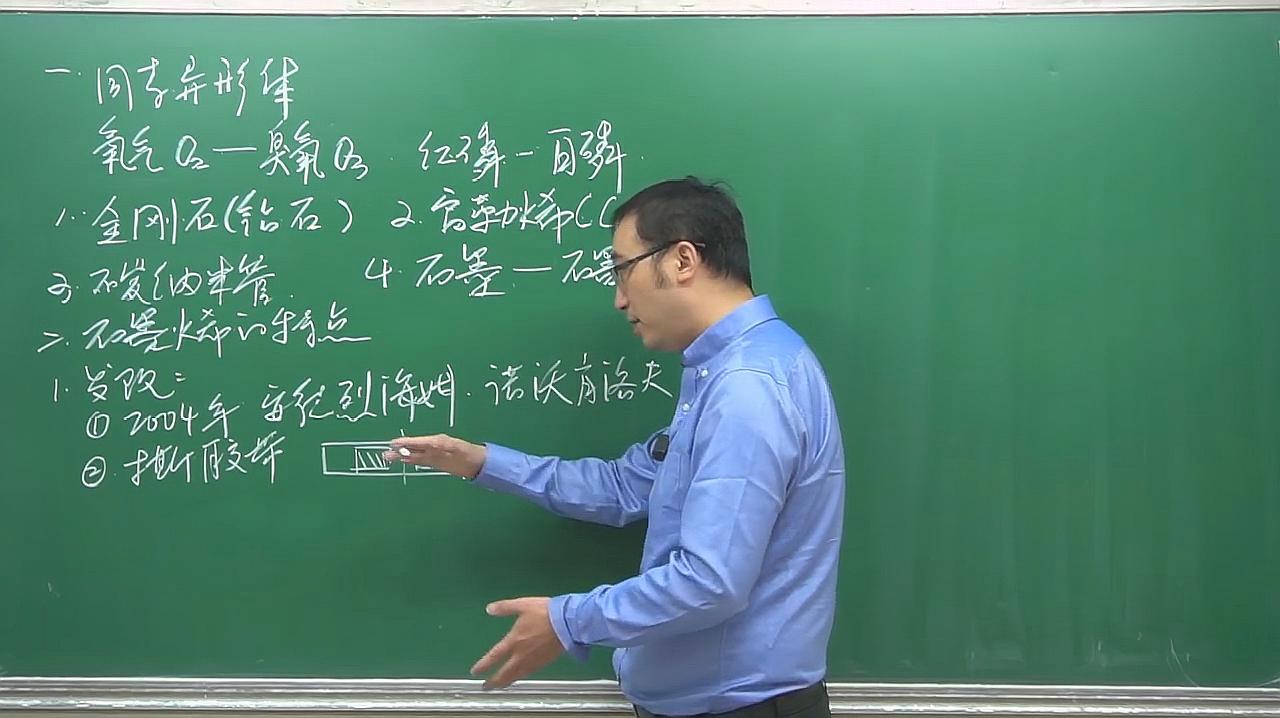 一. 同素异形体
氧气O₂—臭氧O₃. 红磷—白磷.
1. 金刚石(钻石) 2. 富勒烯(C
3. 石炭纳米管. 4. 石墨—石墨
二. 石墨烯的特点
1. 发现:
① 2004年 安德烈海姆. 诺沃肖洛夫
② 撕胶带